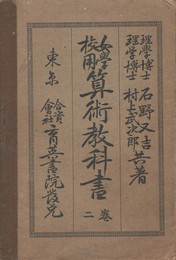 理學博士 石野又吉
理学博士 村上武次郎
共著
女學校用
算術教科書
卷二
東京
合資會社 育英書院發兌